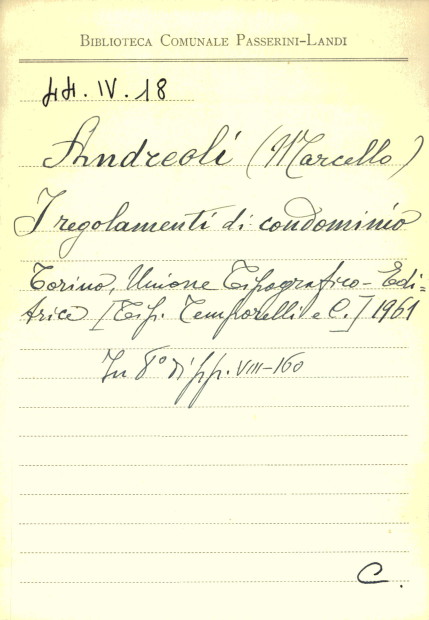 BIBLIOTECA COMUNALE PASSERINI-LANDI
44. IV. 18
Andreoli (Marcello)
I regolamenti di condominio
Torino, Unione Tipografico-Edi=
trice [Tip. Temporelli e C.] 1961
In 8° di pp. VIII-160
C.